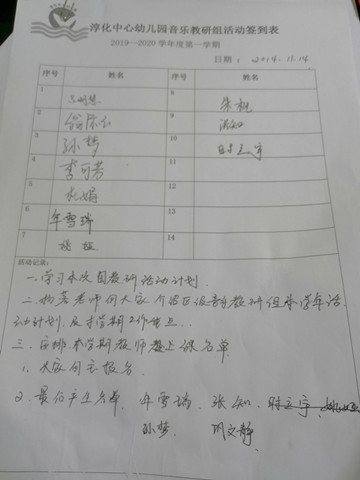 淳化中心幼儿园音乐教研组活动签到表
2019—2020学年度第一学期
日期：2019.11.14
序号 姓名 序号 姓名
1 8
2 9
3 孙梦 10 时立宇
4 李可芳 11
5 张娟 12
6 年雪瑞 13
7 14
活动记录：
一、学习本次园教研活动计划.
二、老师向大家介绍区级音乐教研组本学年活
动计划,及本学期工作重点.
三、安排本学期教师上课名单
1、大家自主报名
2、最后产生名单. 年雪瑞、张知、时立宇
孙梦、闪文静